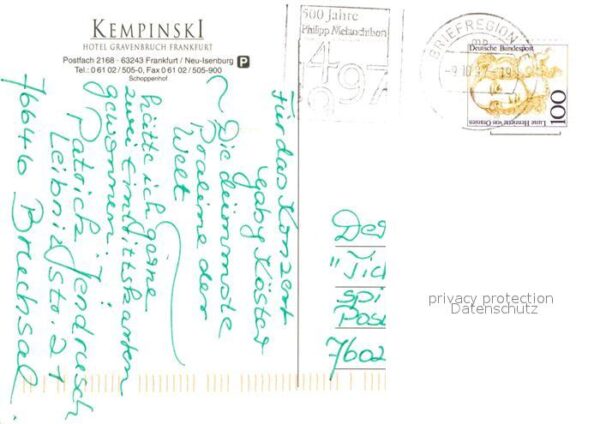 KEMPINSKI
HOTEL GRAVENBRUCH FRANKFURT
Postfach 2168 · 63243 Frankfurt / Neu-Isenburg P
Tel.: 0 61 02 / 505-0, Fax 0 61 02 / 505-900
Schoppenhof
500 Jahre
Philipp Melanchthon
1497
BRIEFREGION
-9.10.97-19
Deutsche Bundespost
100
Luise Henriette von Oranien
Für das Konzert
Gaby Köster
~ Die dümmste
Praline der
Welt
hätte ich gerne
zwei Eintrittskarten
gewonnen!
Patrick Jendrusch
Leibnizstr. 21
76646 Bruchsal
Der
"Tic
Spi
Post
7602
privacy protection
Datenschutz